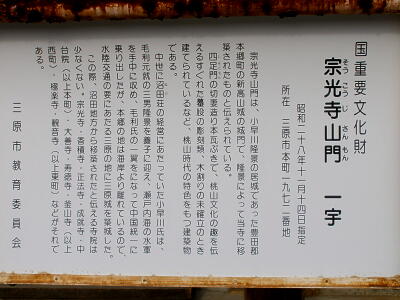 国重要文化財
そうこうじさんもん
宗光寺山門 一宇
昭和二十八年十一月十四日指定
所在 三原市本町一九七二番地
宗光寺山門は、小早川隆景の居城であった豊田郡
本郷町の新高山城の城門で、隆景によって当寺に移
築されたものと伝えられている。
四足門の切妻造り本瓦ぶきで、桃山文化の趣を伝
えるすぐれた蟇股の彫刻類、木割りの未確立のとき
建てられているなど、桃山時代の特色をもつ建築物
である。
中世に沼田荘の経営にあたっていた小早川氏は、
毛利元就の三男隆景を養子に迎え、瀬戸内海の水軍
を手中に収め、毛利氏の一翼をになって中国統一に
乗り出したが、本郷の地は海岸より離れているので、
水陸交通の要にあたる三原の地に三原城を築城した。
この際、沼田地方から移築されたと伝える寺院は
少なくない。宗光寺・香積寺・正法寺・成就寺・中
台院（以上本町）・大善寺・寿徳寺・釜山寺（以上
西町）・極楽寺・観音寺（以上東町）などがそれで
ある。
三原市教育委員会